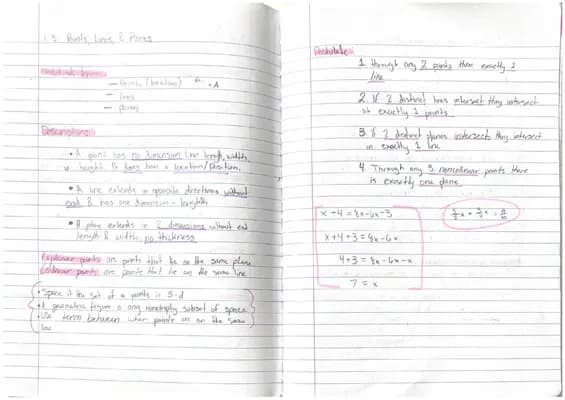 1.3 Points, Lines, & Planes
Undefined terms
— Points (location) • A
— lines
— planes
Descriptions
• A point has no dimension (no length, width,
height. It does have a location/position.
• A line extends in opposite directions without
end & has one dimension - length
• A plane extends in 2 dimensions without end
length & width, no thickness
points are points that lie on the same plane
Collinear points are points that lie on the same line
• Space is the set of a points in 3-d
• A geometric figure is any nonempty subset of space
• Use term between when points are on the same
line
Postulate
1. Through any 2 points there exactly 1
line
2. If 2 distinct lines intersect they intersect
at exactly 1 points
3. If 2 distinct planes intersects they intersect
in exactly 1 line
4. Through any 3 noncollinear points there
is exactly one plane
x - 4 = 8x - 6x - 3
x + 4 + 3 = 8x - 6x
4 + 3 = 8x - 6x - x
7 = x